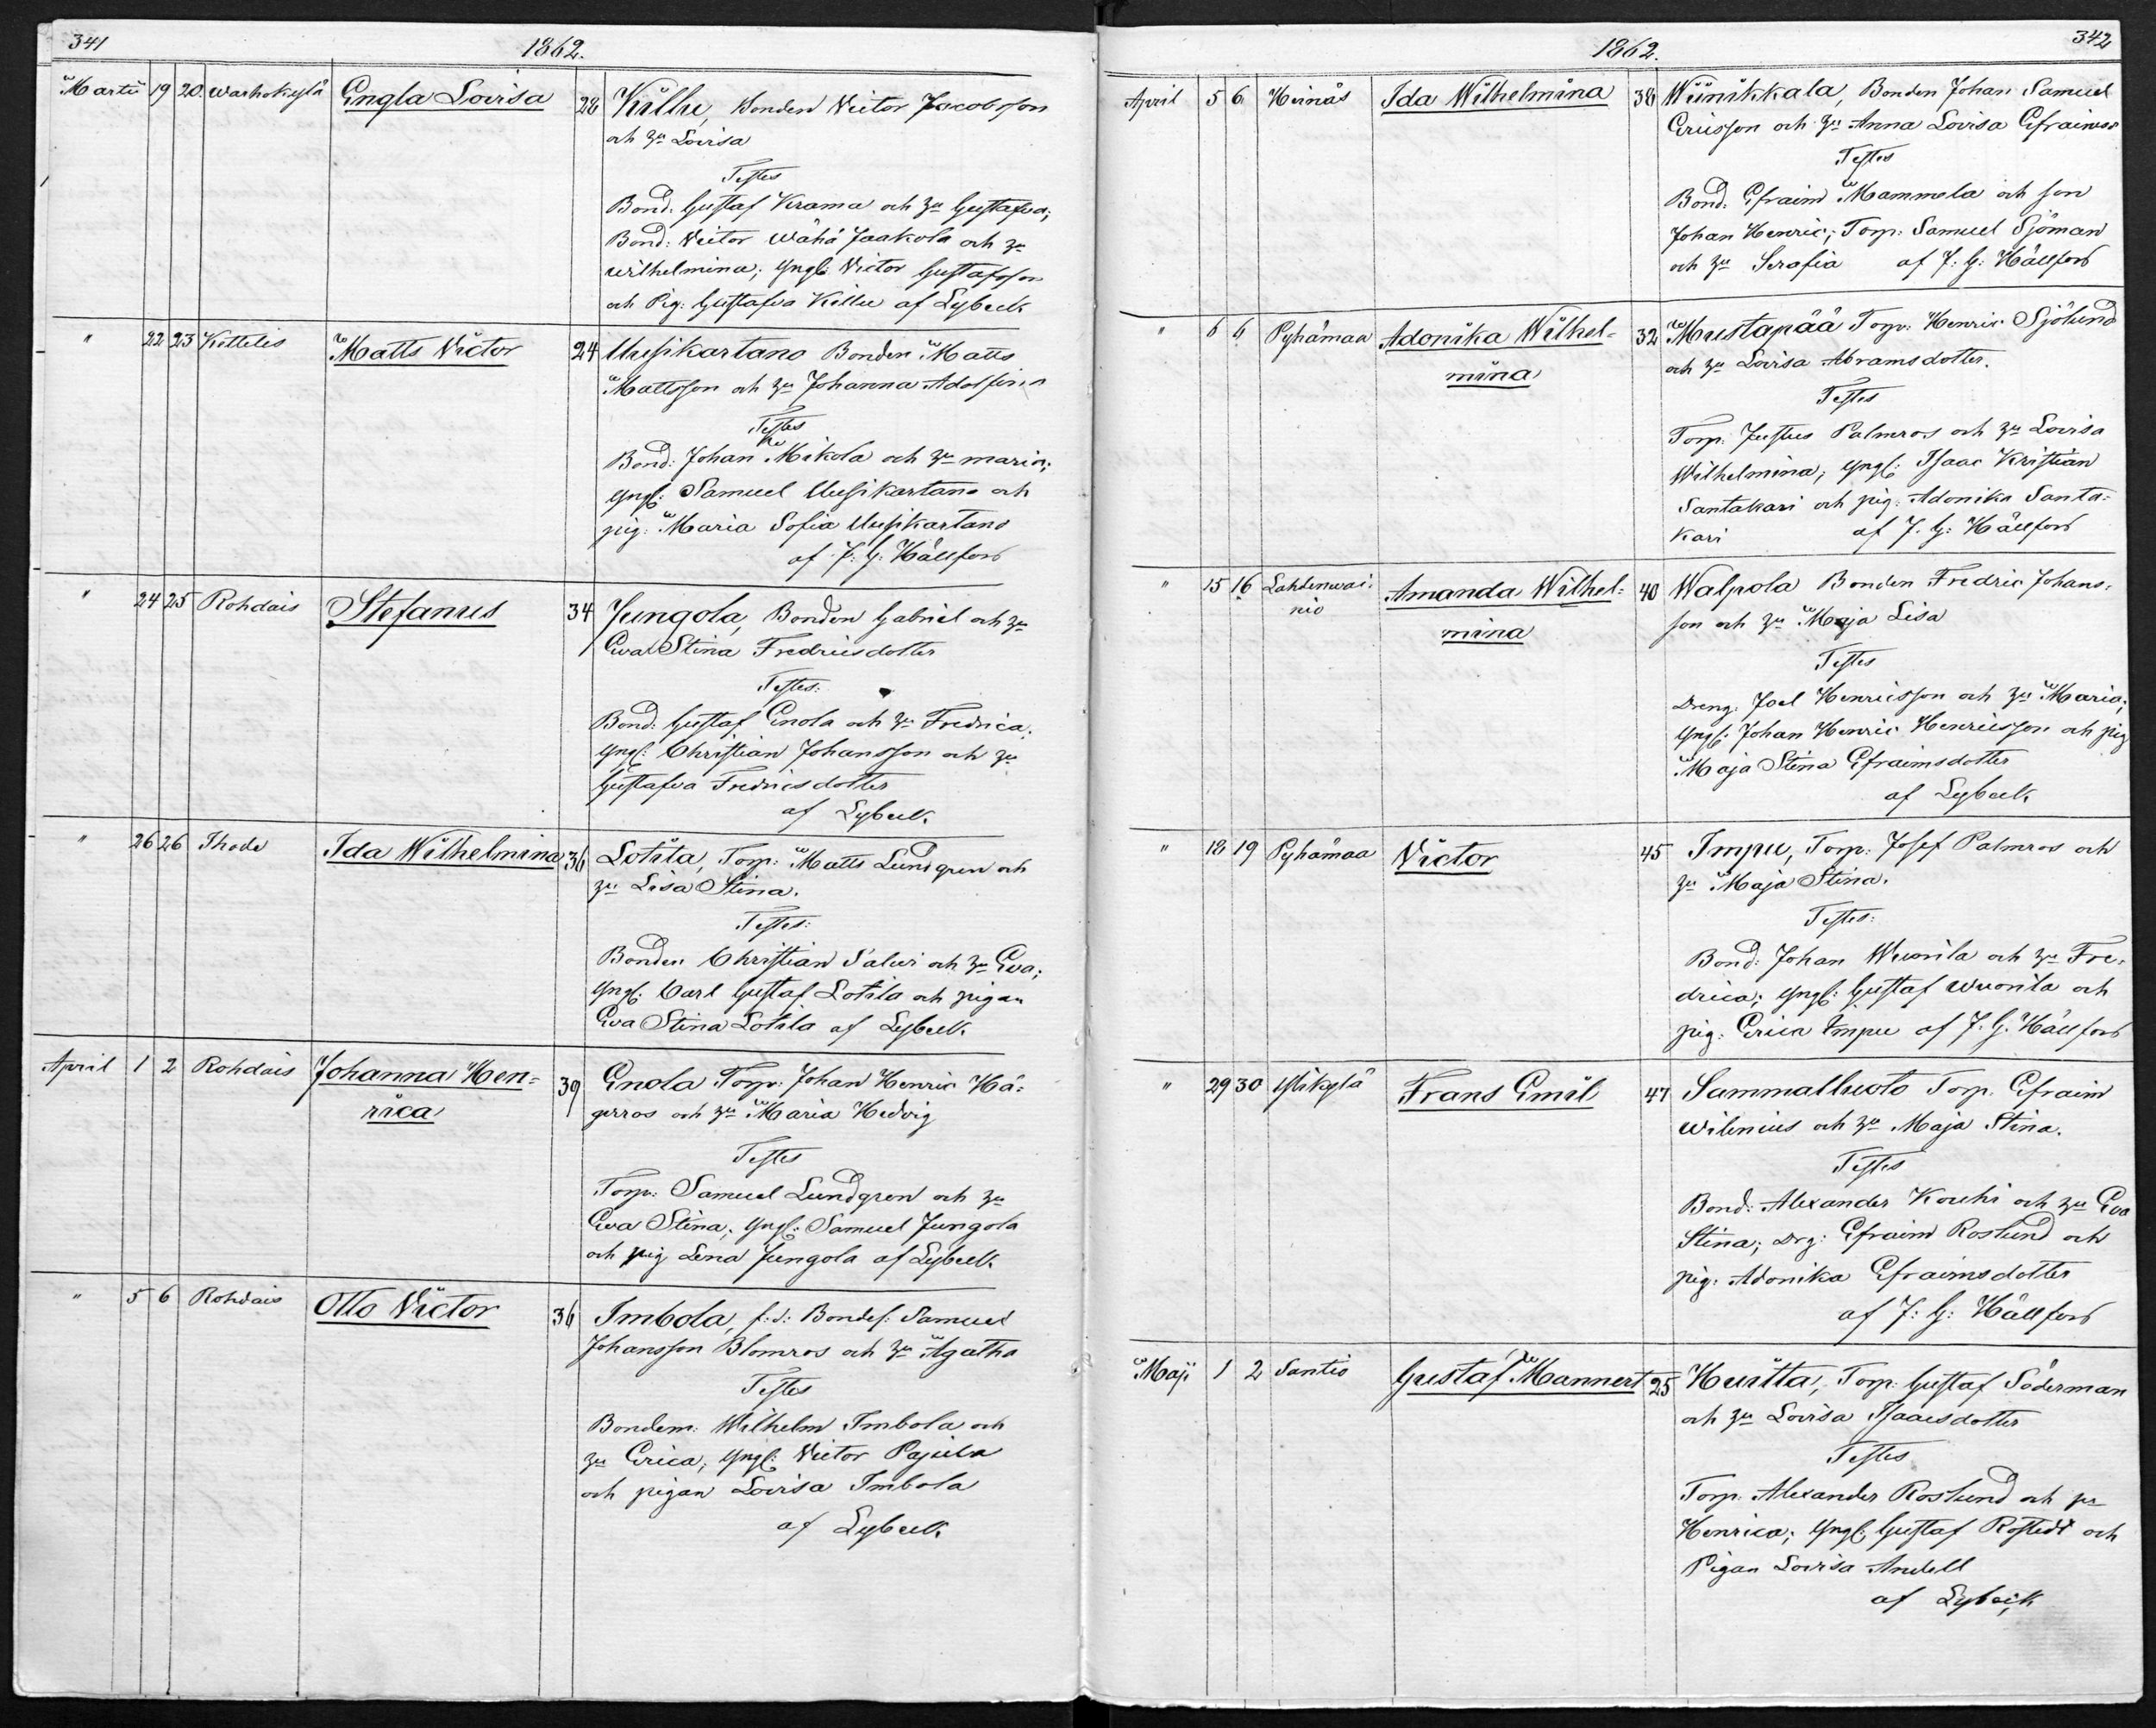 341
1862.
Martii 19 20. Warhokylä Engla Lovisa 28 Killu, Bonden Victor Jacobsson
och hu Lovisa
Testes
Bond: Gustaf Krama och hu Gustafva;
Bond: Victor Wähä Jaakola och hu
Wilhelmina; Yngl: Victor Gustafsson
och Pig: Gustafva Killu af Lybeck
" 22 23 Ketteles Matts Victor 24 Uusikartano Bonden Matts
Mattsson och hu Johanna Adolfina
Testes
Bond: Johan Mikola och hu Maria;
Yngl: Samuel Uusikartano och
pig: Maria Sofia Uusikartano
af J: G: Hällfors
" 24 25 Rohdais Stefanus 34 Jungola, Bonden Gabriel och hu
Eva Stina Fredricsdotter
Testes:
Bond: Gustaf Enola och hu Fredrica;
Yngl: Christian Johansson och hu
Gustafva Fredricsdotter
af Lybeck.
" 26 26 Ihode Ida Wilhelmina 36 Lotila, Torp: Matts Lundgren och
hu Lisa Stina.
Testes:
Bonden Christian Salwi och hu Eva;
Yngl: Carl Gustaf Lotila och pigan
Eva Stina Lotila af Lybeck.
April 1 2 Rohdais Johanna Hen-
rica 39 Enola Torp: Johan Henric Hä-
gerros och hu Maria Hedvig
Testes
Torp: Samuel Lundgren och hu
Eva Stina; Yngl: Samuel Jungola
och pig Lena Jungola af Lybeck.
" 5 6 Rohdais Otto Victor 36 Imbola, f: d: Bondes: Samuel
Johansson Blomros och hu Agatha
Testes
Bondem: Wilhelm Imbola och
hu Erica; Yngl: Victor Pajula
och pigan Lovisa Imbola
af Lybeck
342
1862.
April 5 6 Heinäs Ida Wilhelmina 38 Wiinikkala, Bonden Johan Samuel
Ericsson och hu Anna Lovisa Efraimsd
Testes
Bond: Efraim Mammela och son
Johan Henric; Torp: Samuel Sjöman
och hu Serafia af J: G: Hällfors
" 6 6 Pyhämaa Adonika Wilhel-
mina 32 Mustapää Torp: Henric Sjölund
och hu Lovisa Abramsdotter.
Testes
Torp: Justus Palmros och hu Lovisa
Wilhelmina; Yngl: Isaac Kristian
Santakari och pig: Adonika Santa-
kari af J. G: Hällfors
" 15 16 Lahdenwai-
nio Amanda Wilhel-
mina 40 Walpola Bonden Fredric Johans-
son och hu Maja Lisa
Testes
Dreng: Joel Henricsson och hu Maria;
Yngl: Johan Henric Henricsson och pig
Maja Stina Efraimsdotter
af Lybeck.
" 18 19 Pyhämaa Victor 45 Impu, Torp: Josef Palmros och
hu Maja Stina.
Testes:
Bond: Johan Wuorila och hu Fre-
drica; Yngl: Gustaf Wuorila och
pig: Erica Impu af J. G. Hällfors
" 29 30 Ylikylä Frans Emil 47 Sammalluoto Torp. Efraim
Wilenius och hu Maja Stina.
Testes
Bond: Alexander Kouhi och hu Eva
Stina; Drg: Efraim Roslund och
pig: Adonika Efraimsdotter
af J: G: Hällfors
Maji 1 2 Santio Gustaf Mannert 25 Huitta, Torp: Gustaf Söderman
och hu Lovisa Isaacsdotter
Testes
Torp: Alexander Roslund och hu
Henrica; Yngl: Gustaf Rostedt och
Pigan Lovisa Andell
af Lybeck